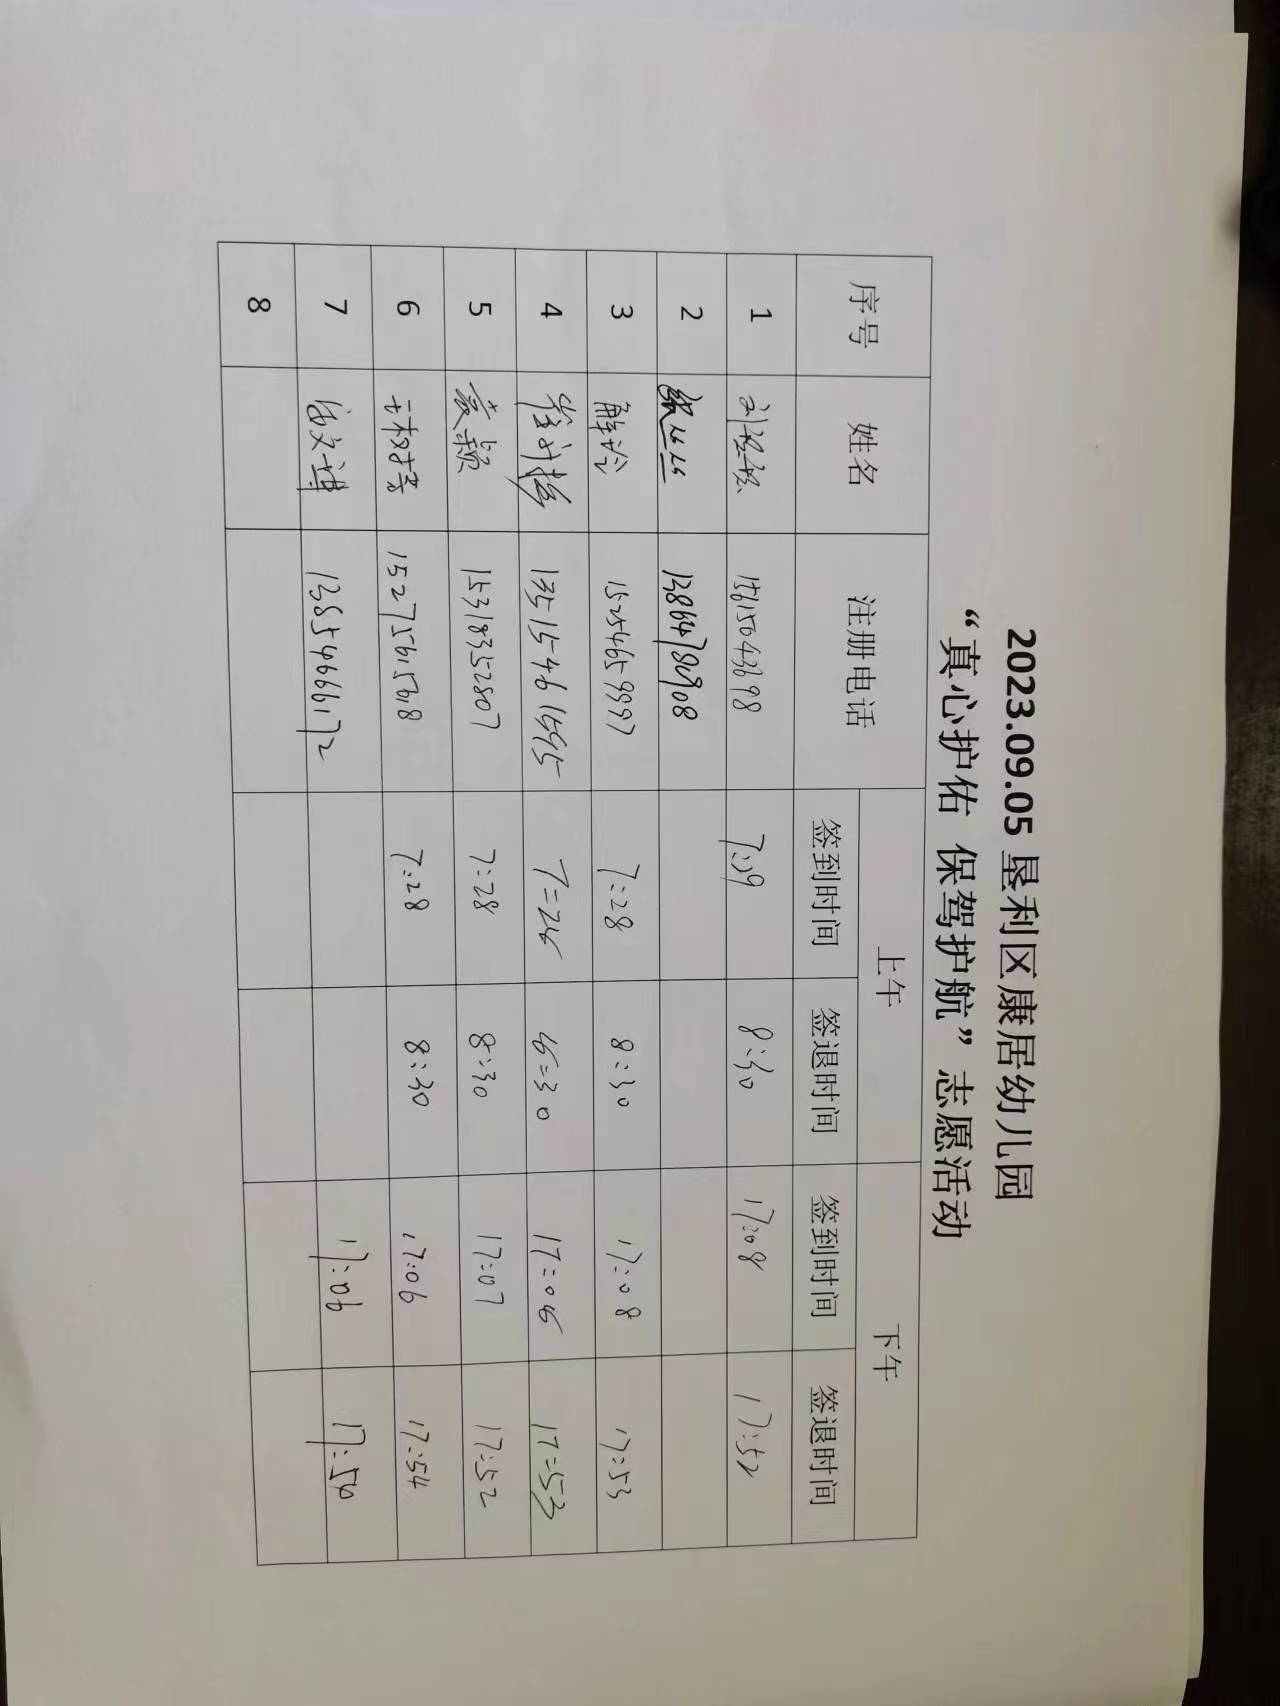 2023.09.05 垦利区康居幼儿园
“真心护佑 保驾护航”志愿活动
序号 姓名 注册电话 上午 下午
签到时间 签退时间 签到时间 签退时间
1 15615043698 8:30 17:08 17:52
2 丝丝
3 解玲 15254659997 7:28 8:30 17:08 17:53
4 13515461595 8=30 17=06 17=53
5 袁颖 15318352807 7:28 8:30 17:07 17:52
6 15275615618 7:28 8:30 17:06 17:54
7 13854666172 17:06
8